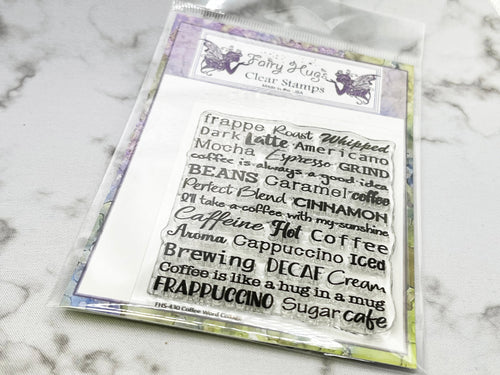 Fairy Hugs
Clear Stamps
Made in the USA
frappe Roast Whipped
Dark Latte Americano
Mocha Espresso GRIND
coffee is always a good idea
BEANS Caramel coffee
Perfect Blend CINNAMON
I'll take a coffee with my sunshine
Caffeine Hot Coffee
Aroma Cappuccino Iced
Brewing DECAF Cream
Coffee is like a hug in a mug
FRAPPUCCINO Sugar cafe
FHS-430 Coffee Word